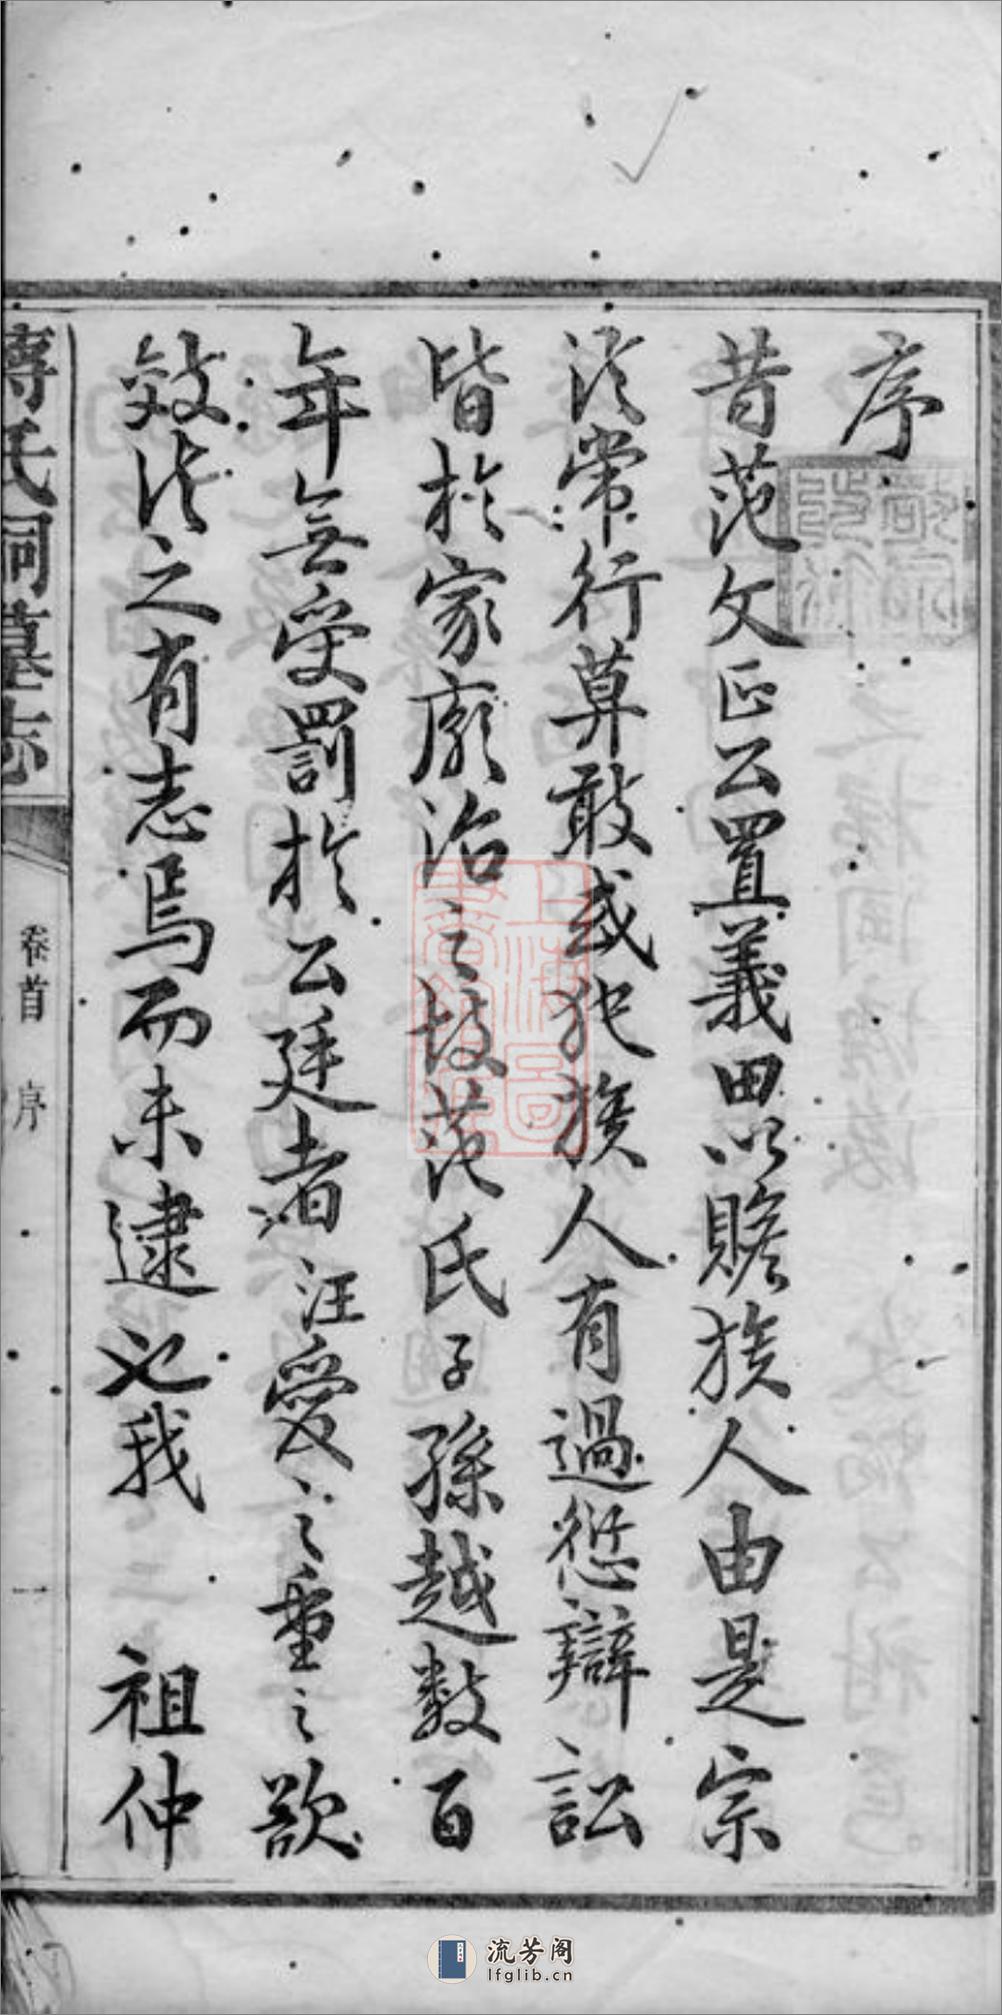 序
昔范文正公置義田以贍族人由是宗
法常行莫敢或犯族人有過愆辯訟
皆於家廟治之故范氏子孫越數百
年無受罰於公廷者汪愛之重之欲
效法之有志焉而未逮也我 祖仲
傅氏祠墓志
卷首 序
一
上海圖書館藏
流芳阁
lfglib.cn